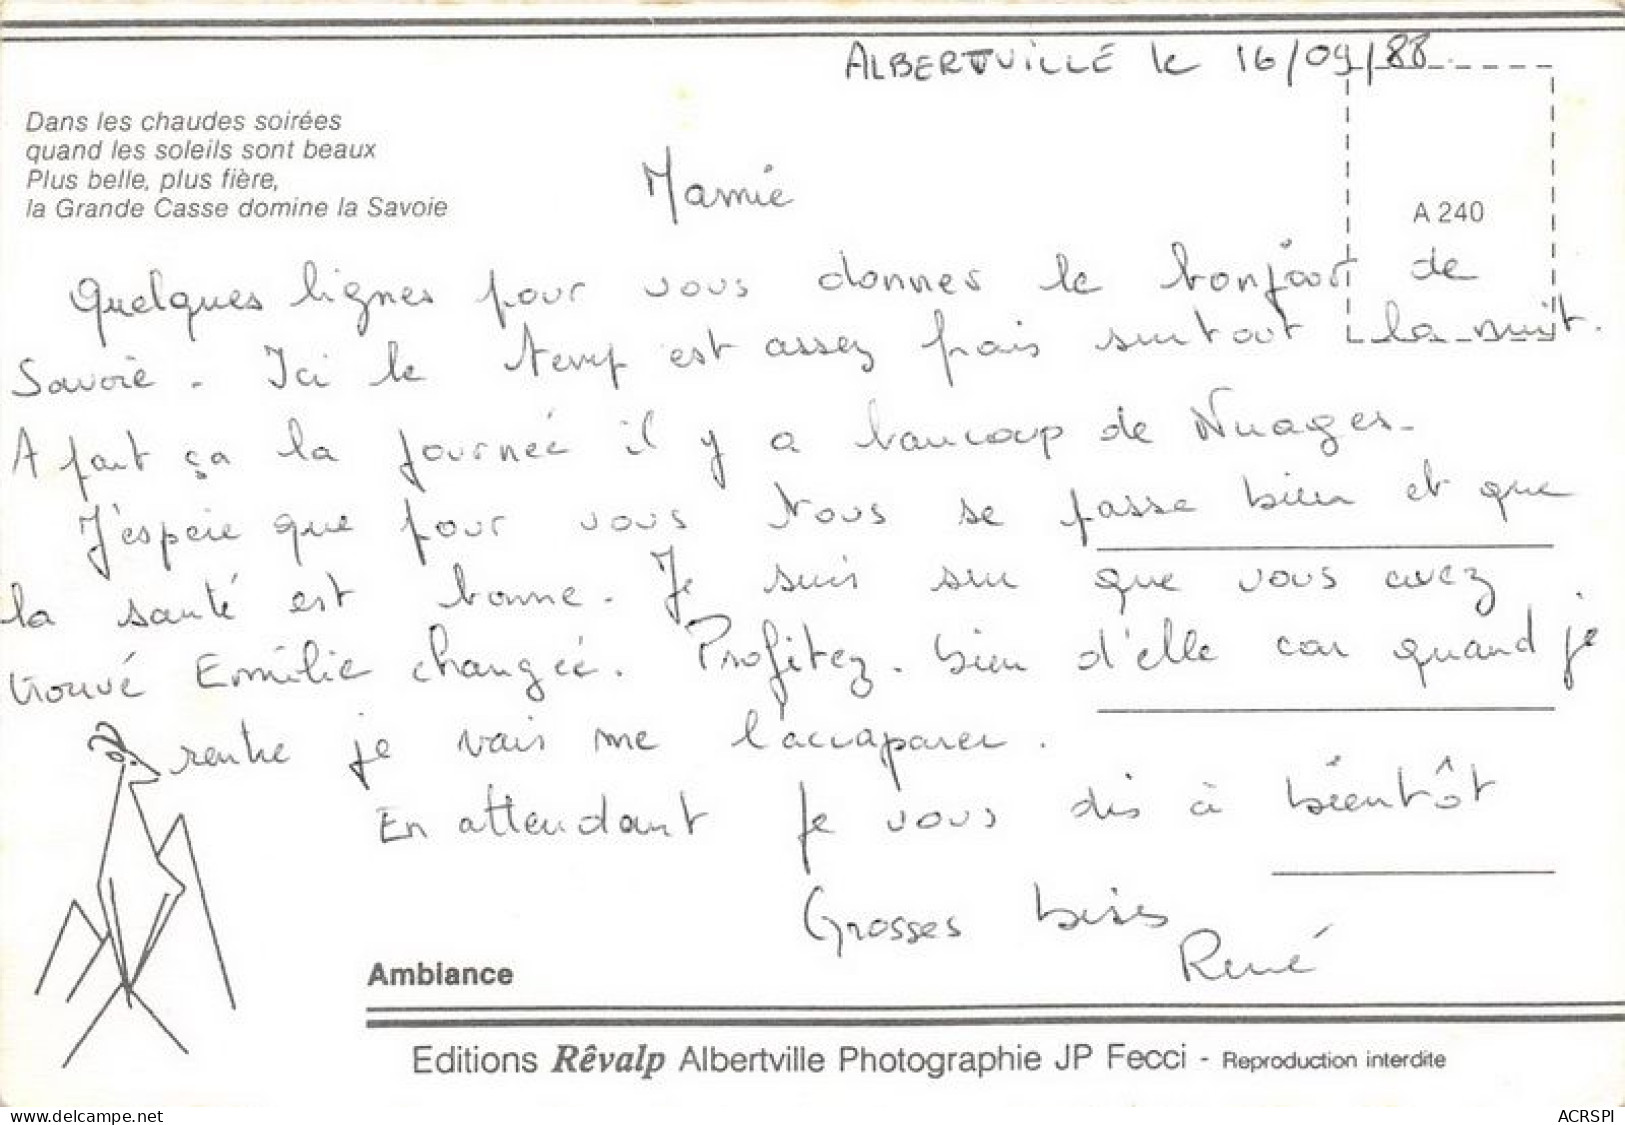 ALBERTVILLE le 16/09/88
Dans les chaudes soirées
quand les soleils sont beaux
Plus belle, plus fière,
la Grande Casse domine la Savoie
A 240
Mamie
Quelques lignes pour vous donner le bonjour de
Savoie. Ici le temp est assez frais surtout la nuit.
A part ça la journée il y a baucoup de Nuages.
J'espère que pour vous tous se passe bien et que
la santé est bonne. Je suis sur que vous avez
trouvé Emilie changée. Profitez. bien d'elle car quand je
rentre je vais me l'accaparer.
En attendant je vous dis à bientôt
Grosses bises
René
Ambiance
Editions Rêvalp Albertville Photographie JP Fecci - Reproduction interdite
www.delcampe.net
ACRSPI